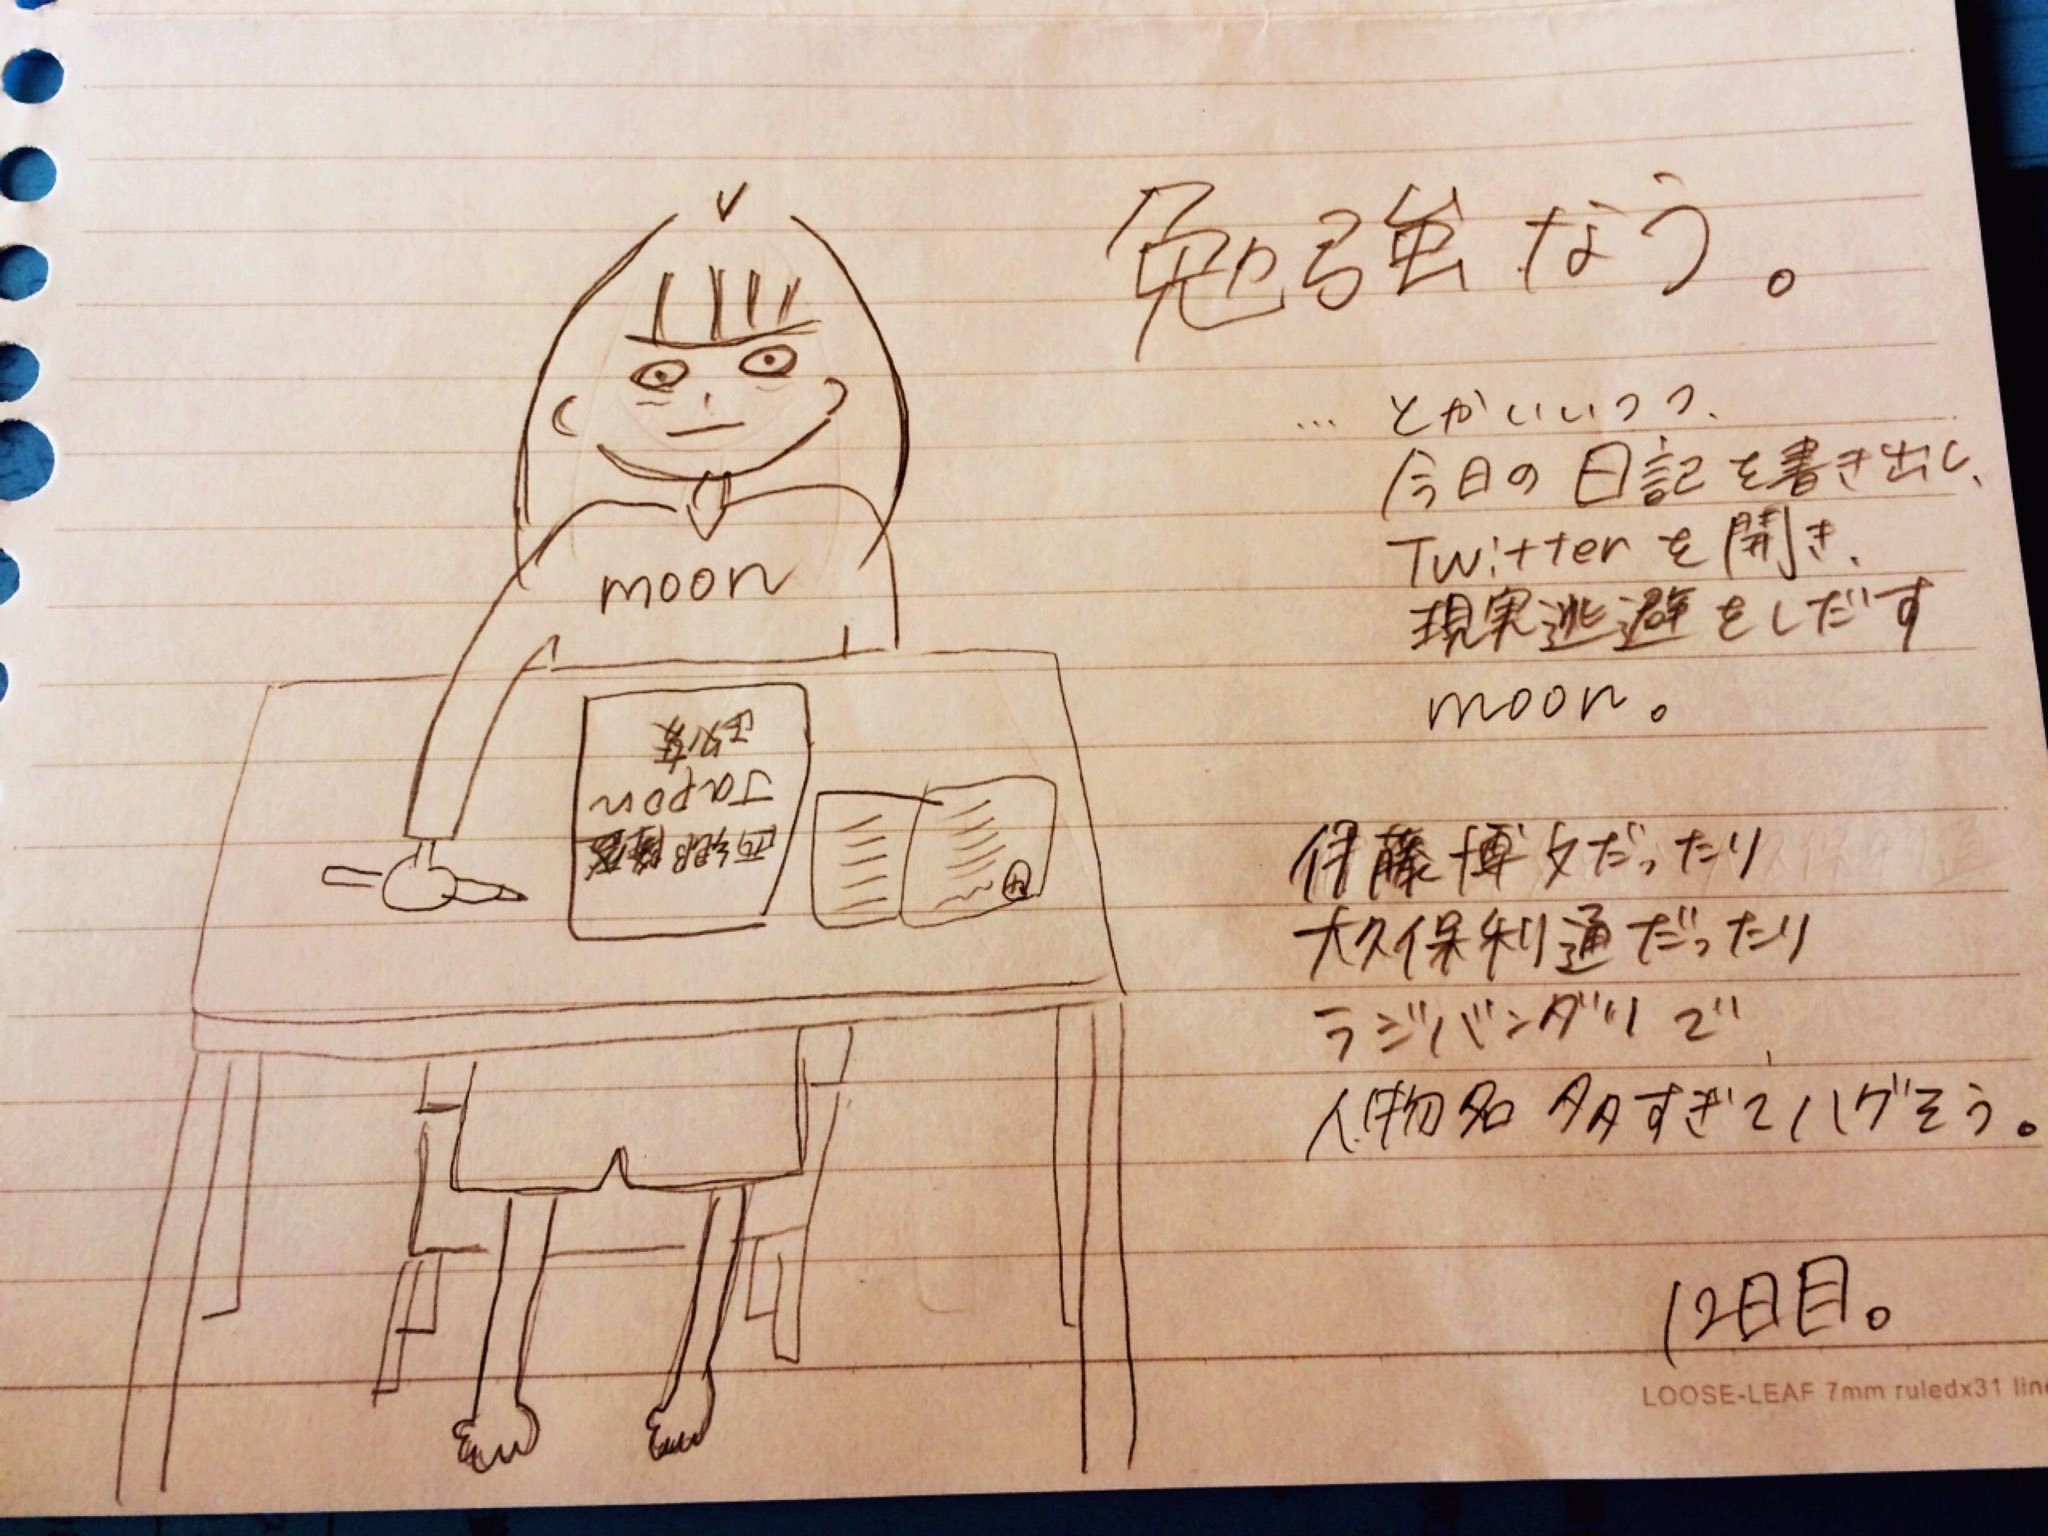 勉強なう。
… とかいいつつ、
今日の日記を書き出し、
Twitterを開き、
現実逃避をしだす
moon。
moon
政策
Japan
西郷隆盛
伊藤博文だったり
大久保利通だったり
ラジバンダリで、
人物名多すぎてハゲそう。
12日目。
LOOSE-LEAF 7mm ruledx31 line